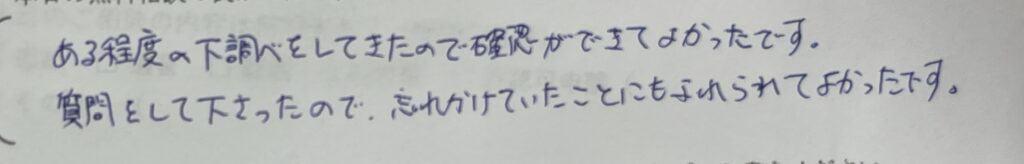 ある程度の下調べをしてきたので確認ができてよかったです。
質問をして下さったので、忘れかけていたことにもふれられてよかったです。